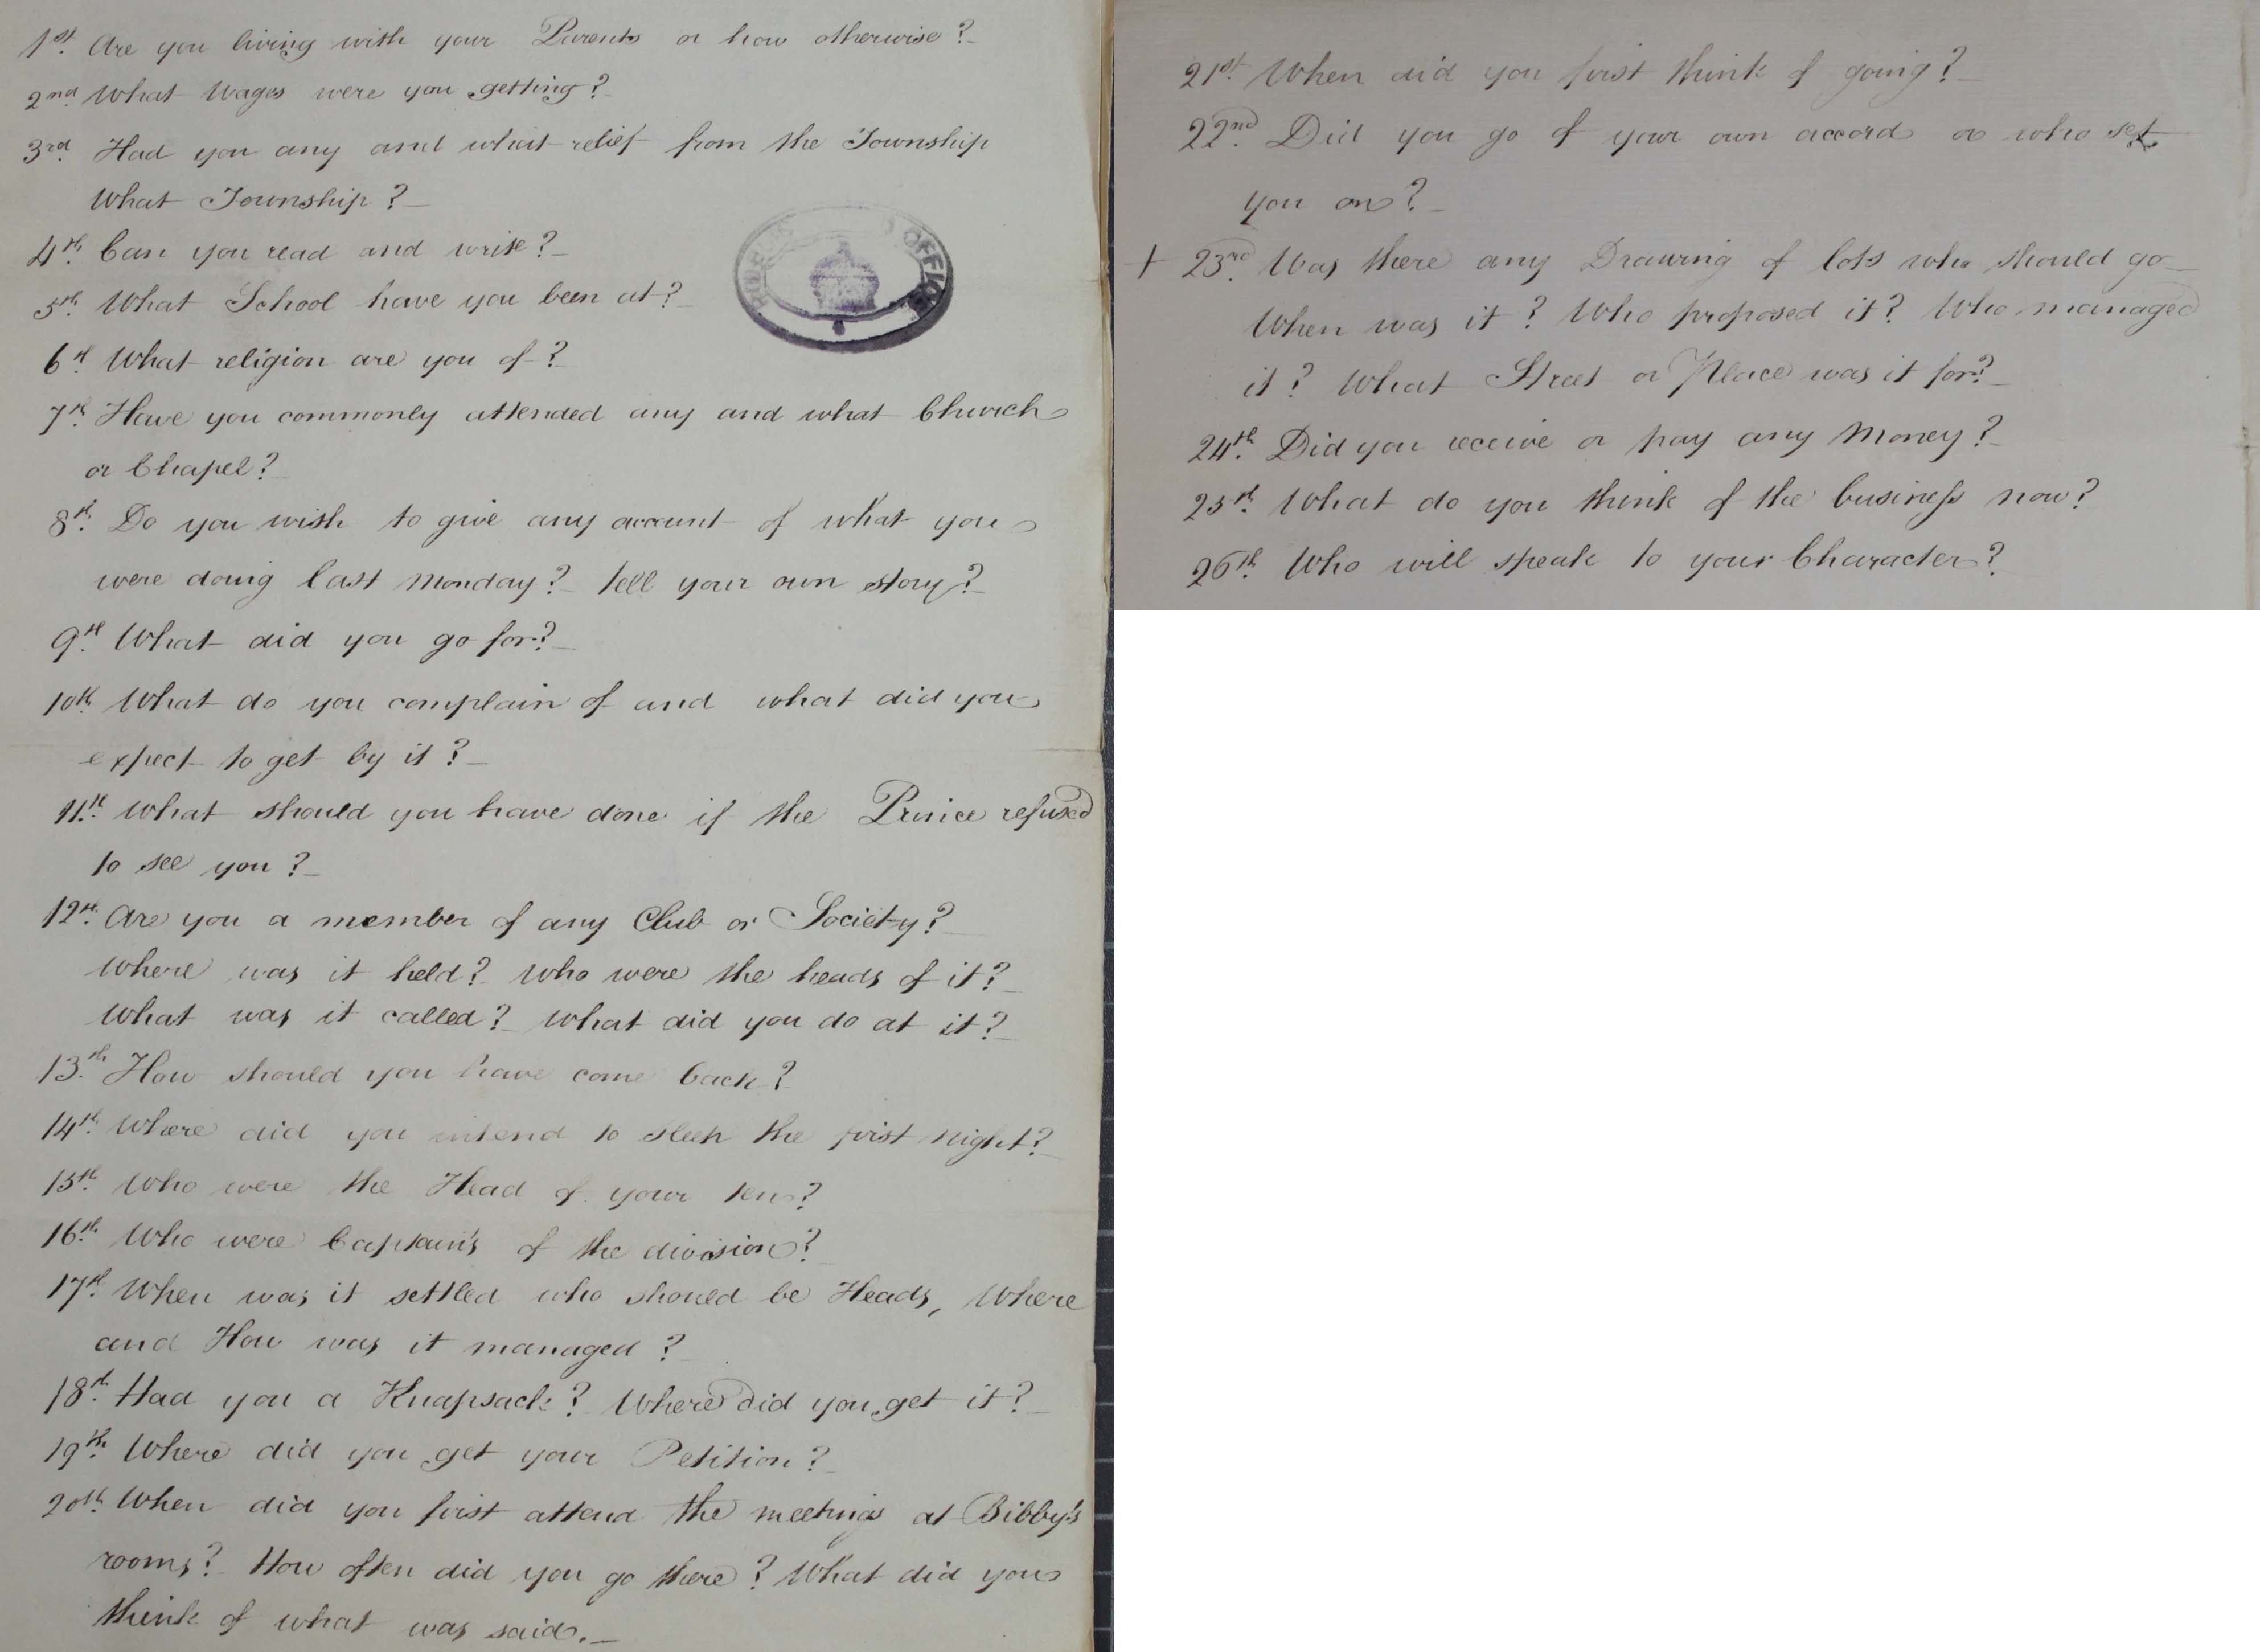 1st. Are you living with your Parents or how otherwise?
2nd. What Wages were you getting?
3rd. Had you any and what relief from the Township
What Township?
4th. Can you read and write?
5th. What School have you been at?
6th. What religion are you of?
7th. Have you commonly attended any and what Church
or Chapel?
8th. Do you wish to give any account of what you
were doing last Monday? tell your own story?
9th. What did you go for?
10th. What do you complain of and what did you
expect to get by it?
11th. What should you have done if the Prince refused
to see you?
12th. Are you a member of any Club or Society?
Where was it held? Who were the heads of it?
What was it called? What did you do at it?
13th. How should you have come back?
14th. Where did you intend to sleep the first night?
15th. Who were the Head of your ten?
16th. Who were Captain's of the division?
17th. When was it settled who should be Heads, Where
and How was it managed?
18th. Had you a Knapsack? Where did you get it?
19th. Where did you get your Petition?
20th. When did you first attend the meetings at Bibby's
rooms? How often did you go there? What did you
think of what was said.
OFFICE
21st. When did you first think of going?
22nd. Did you go of your own accord or who set
you on?
+ 23rd. Was there any Drawing of lots who should go
When was it? Who proposed it? Who managed
it? What Street or Place was it for?
24th. Did you receive or pay any Money?
25th. What do you think of the business now?
26th. Who will speak to your Character?